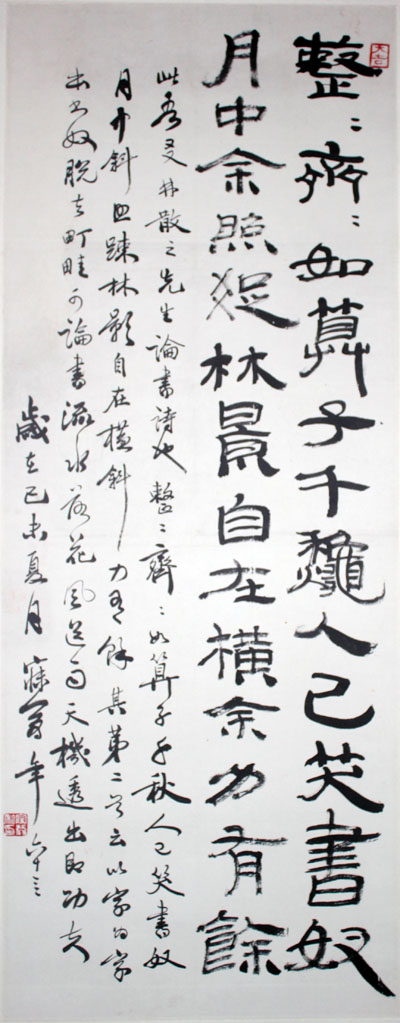 大吉
整〻齊〻如算子千龝人已笑書奴
月中余照疏林景自在橫余力有餘
此吾友林散之先生論書詩也整〻齊〻如算子千秋人已笑書奴
月中斜照疎林影自在橫斜力有餘其第二首云以字為字
本書奴脫去町畦可論書流水落花風送雨天機透出即功夫
歲在己未夏月年六十三